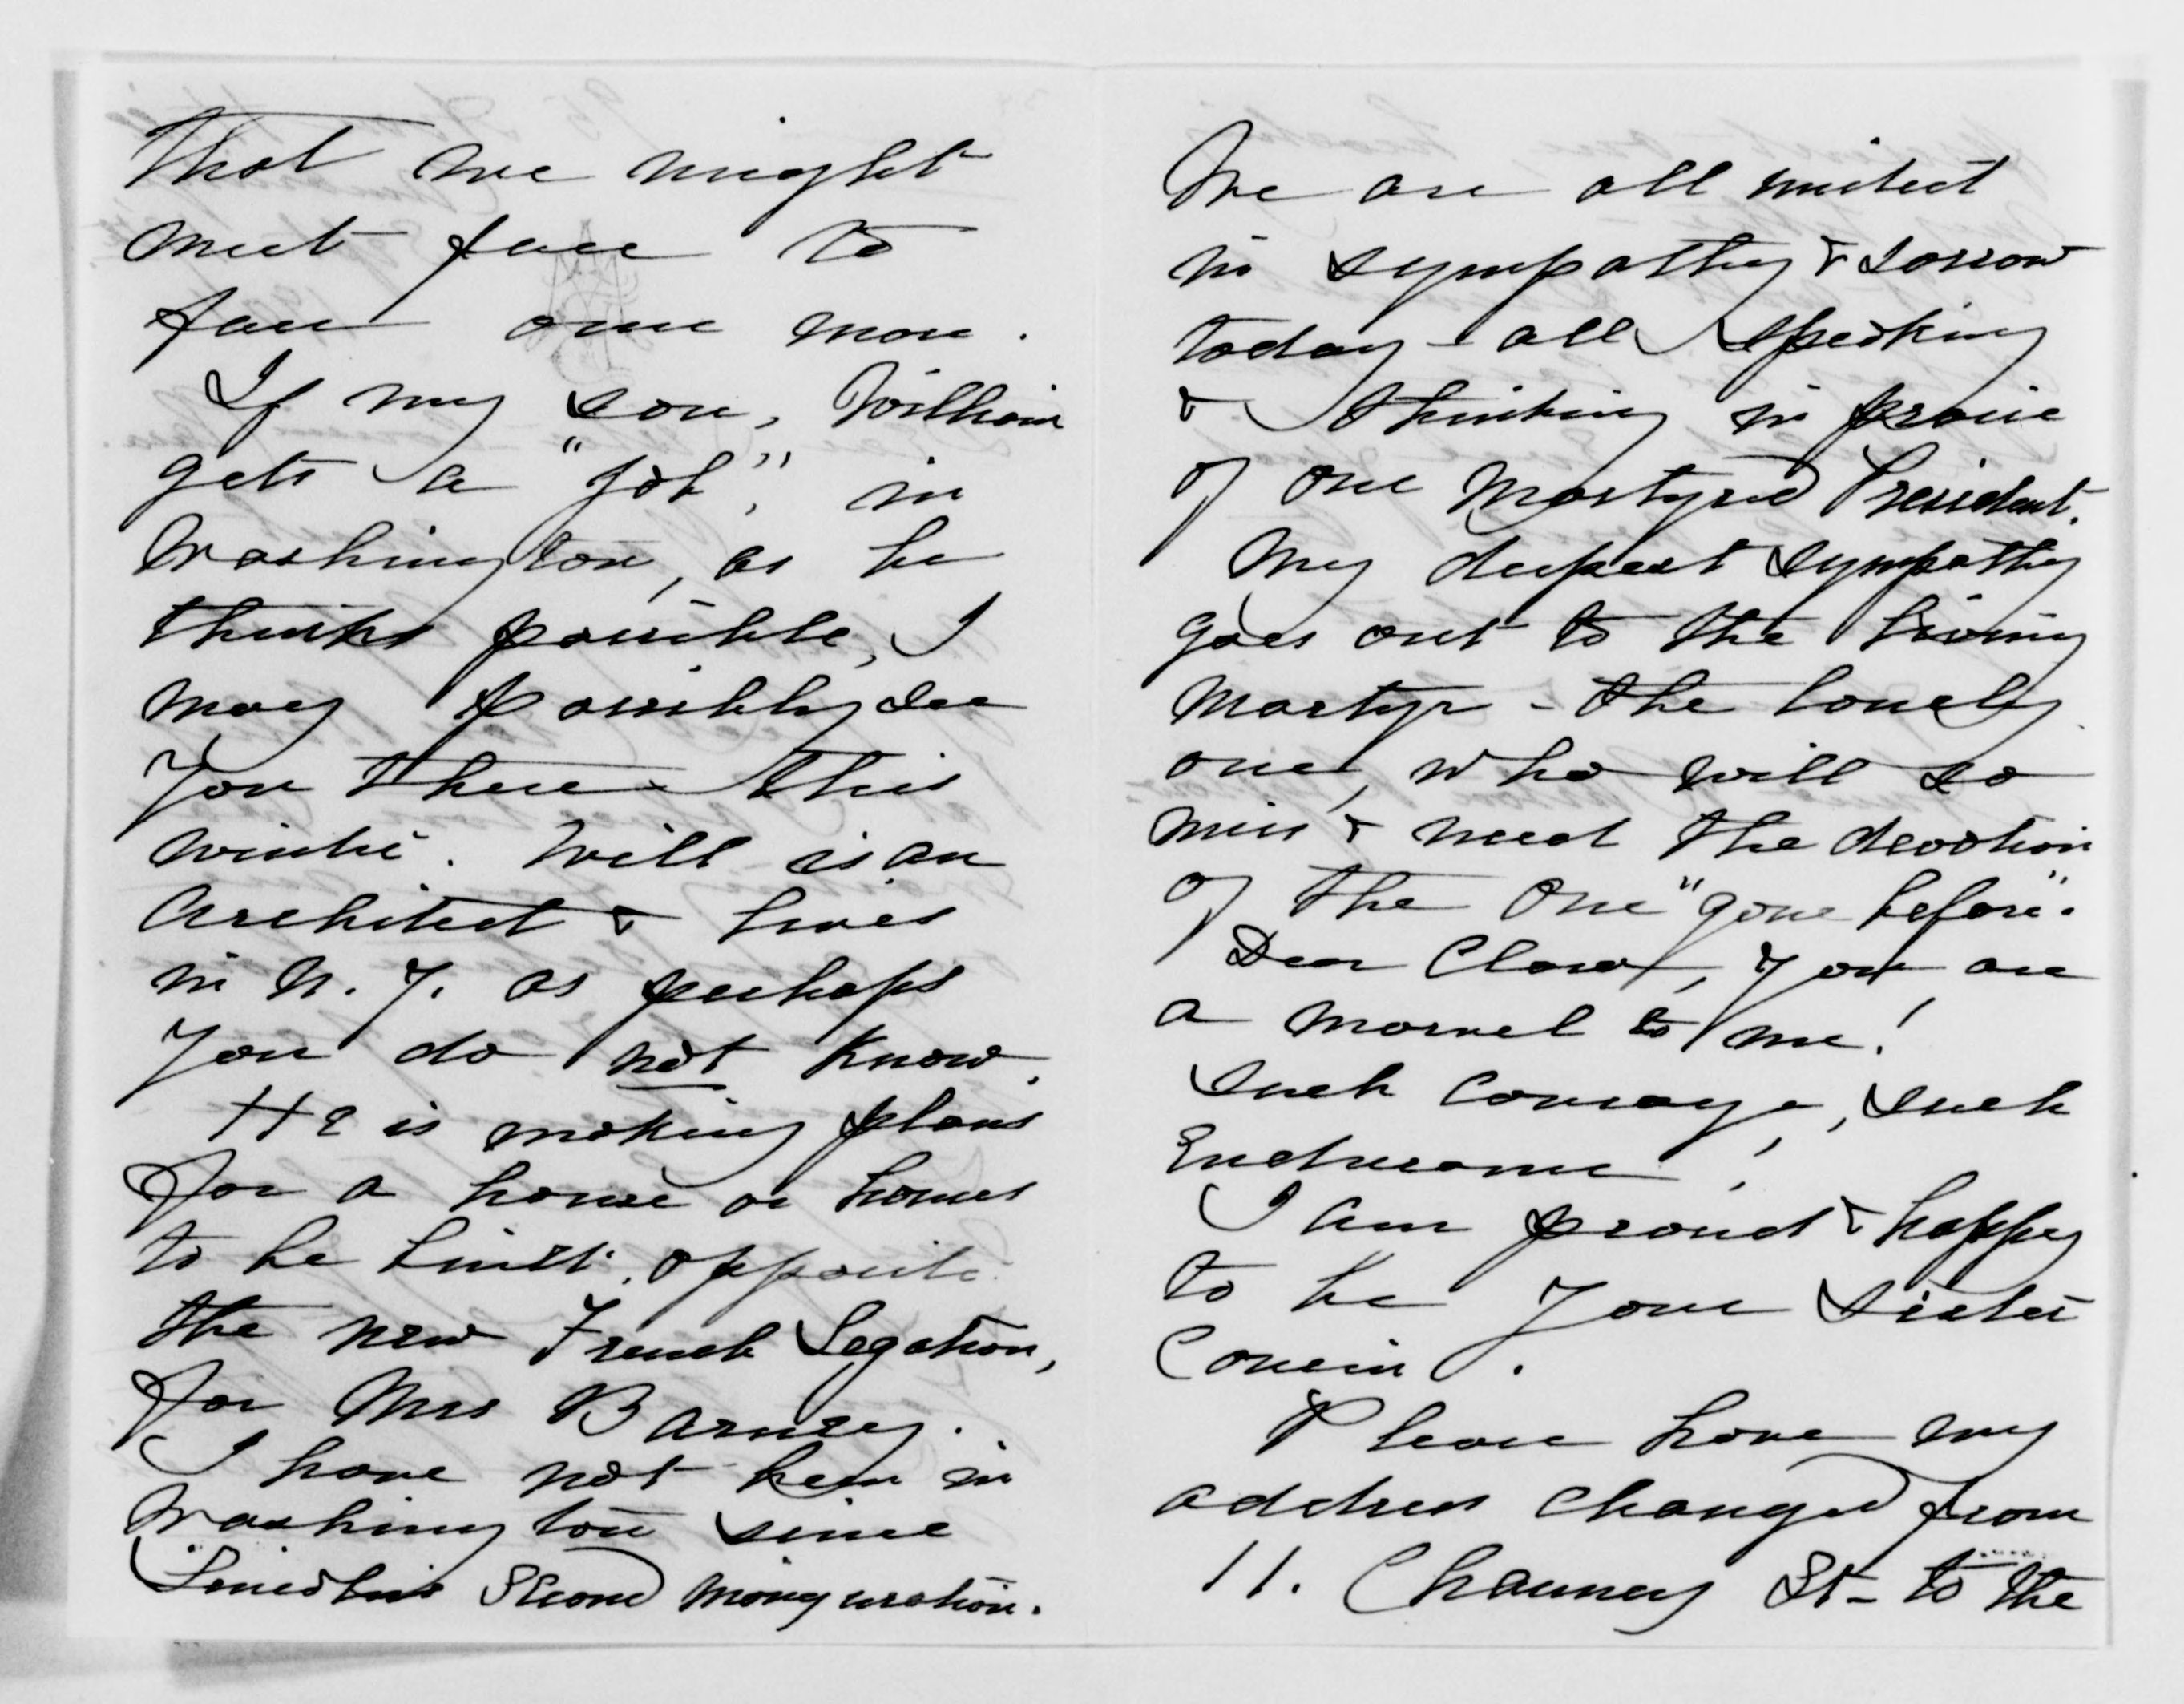 That we might
meet face to
face once more.
If my son, William
gets a "job", in
Washington, as he
thinks possible, I
may possibly see
you there - this
winter. Will is an
Architect & lives
in N.Y. as perhaps
you do not know.
He is making plans
for a house or homes
to be built opposite
the new French Legation,
for Mrs Barney.
I have not been in
Washington since
Lincoln's Second inauguration.
We are all united
in sympathy & sorrow
today - all speaking
& thinking in praise
of our Martyred President.
My deepest sympathy
goes out to the living
Martyr - the lonely
one, who will so
miss & need the devotion
of the One "gone before".
Dear Clara, you are
a marvel to me!
Such Courage, such
Endurance!
I am proud & happy
to be your sister
Cousin.
Please have my
address changed from
11. Chauncy St - to the